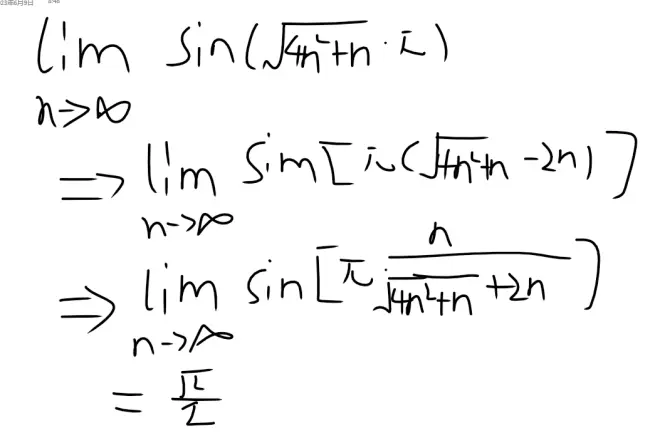 lim sin(√(4n²+n)·π)
n→∞
⇒ lim sin[π(√(4n²+n) -2n)]
n→∞
⇒ lim sin[π·n/(√(4n²+n)+2n)]
n→∞
= π/2